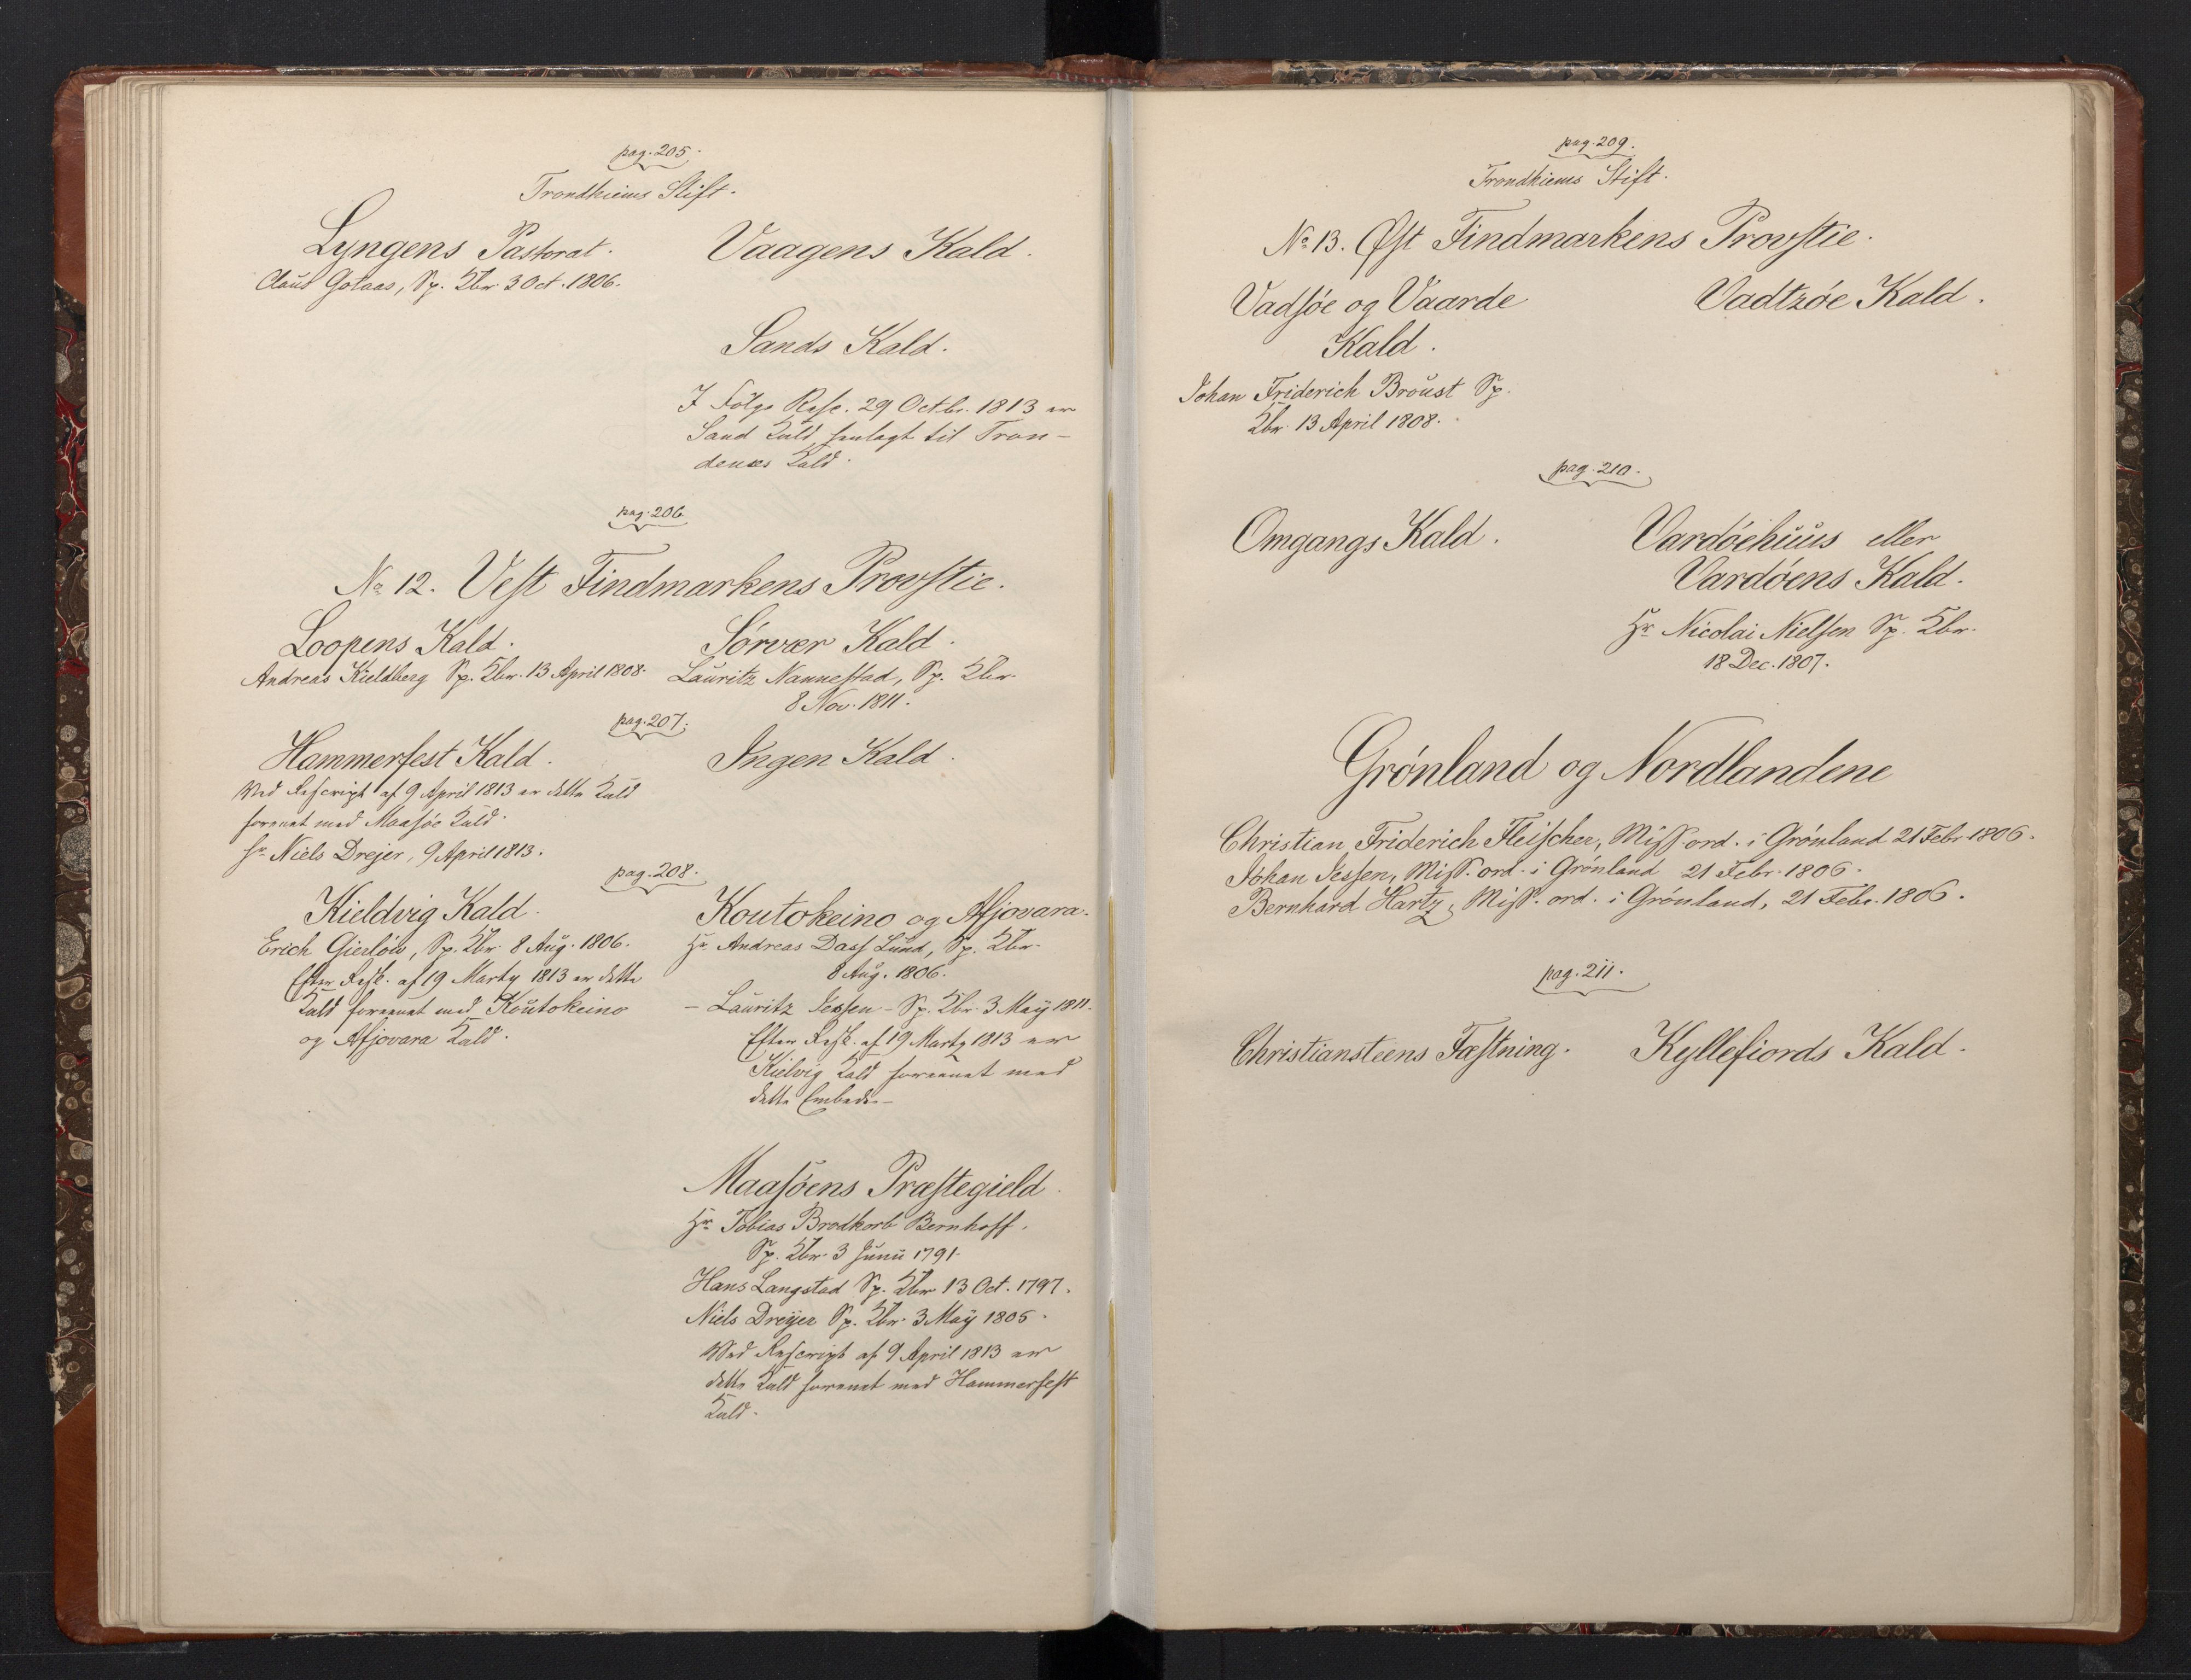 pag. 205.
Trondhiems Stift.
Lyngens Pastorat.
Claus Gotaas, Sp. Kbr. 3 Oct. 1806.
Vaagens Kald.
Sands Kald.
I Følge Resc. 29 Octbr. 1813 er
Sand Kald henlagt til Tron-
denæs Kald.
pag. 206
No 12. Vest Findmarkens Provstie.
Loopens Kald.
Andreas Kieldberg Sp. Kbr. 13 April 1808.
Sørvær Kald.
Lauritz Nannestad, Sp. Kbr.
8 Nov. 1811.
pag. 207.
Hammerfest Kald.
Ved Rescript af 9 April 1813 er dette Kald
forenet med Maasøe Kald.
Hr Niels Drejer, 9 April 1813.
Ingen Kald.
pag. 208.
Kieldvig Kald.
Erich Gierløw, Sp. Kbr. 8 Aug. 1806.
Efter Resk. af 19 Marty 1813 er dette
Kald foreenet med Koutokeino
og Afjovara Kald.
Koutokeino og Afjovara.
Hr. Andreas Dass Lund, Sp. Kbr.
8 Aug. 1806.
- Lauritz Jessen - Sp. Kbr. 3 May 1811.
Efter Resk. af 19 Marty 1813 er
Kielvig Kald foreenet med
dette Embede.
Maasøens Præstegield.
Hr. Tobias Brodkorb Bernhoff.
Sp. Kbr. 3 Junii 1791.
Hans Langstad Sp. Kbr 13 Oct. 1797.
Niels Dreyer Sp. Kbr. 3 May 1805.
Ved Rescript af 9 April 1813 er
dette Kald forenet med Hammerfest
Kald.
pag. 209.
Trondhiems Stift.
No 13. Øst Findmarkens Provstie.
Vadsøe og Vaarde
Kald.
Johan Friderich Broust Sp.
Kbr. 13 April 1808.
Vadtzøe Kald.
pag. 210.
Omgangs Kald.
Vardøehuus eller
Vardøens Kald.
Hr Nicolai Nielsen Sp. Kbr.
18 Dec. 1807.
Grønland og Nordlandene
Christian Friderich Fleischer, Miss. ord. i Grønland 21 Febr. 1806.
Johan Jessen, Miss. ord. i Grønland 21 Febr. 1806.
Bernhard Hartz, Miss. ord. i Grønland, 21 Febr. 1806.
pag. 211.
Christiansteens Fæstning.
Kyllefiords Kald.